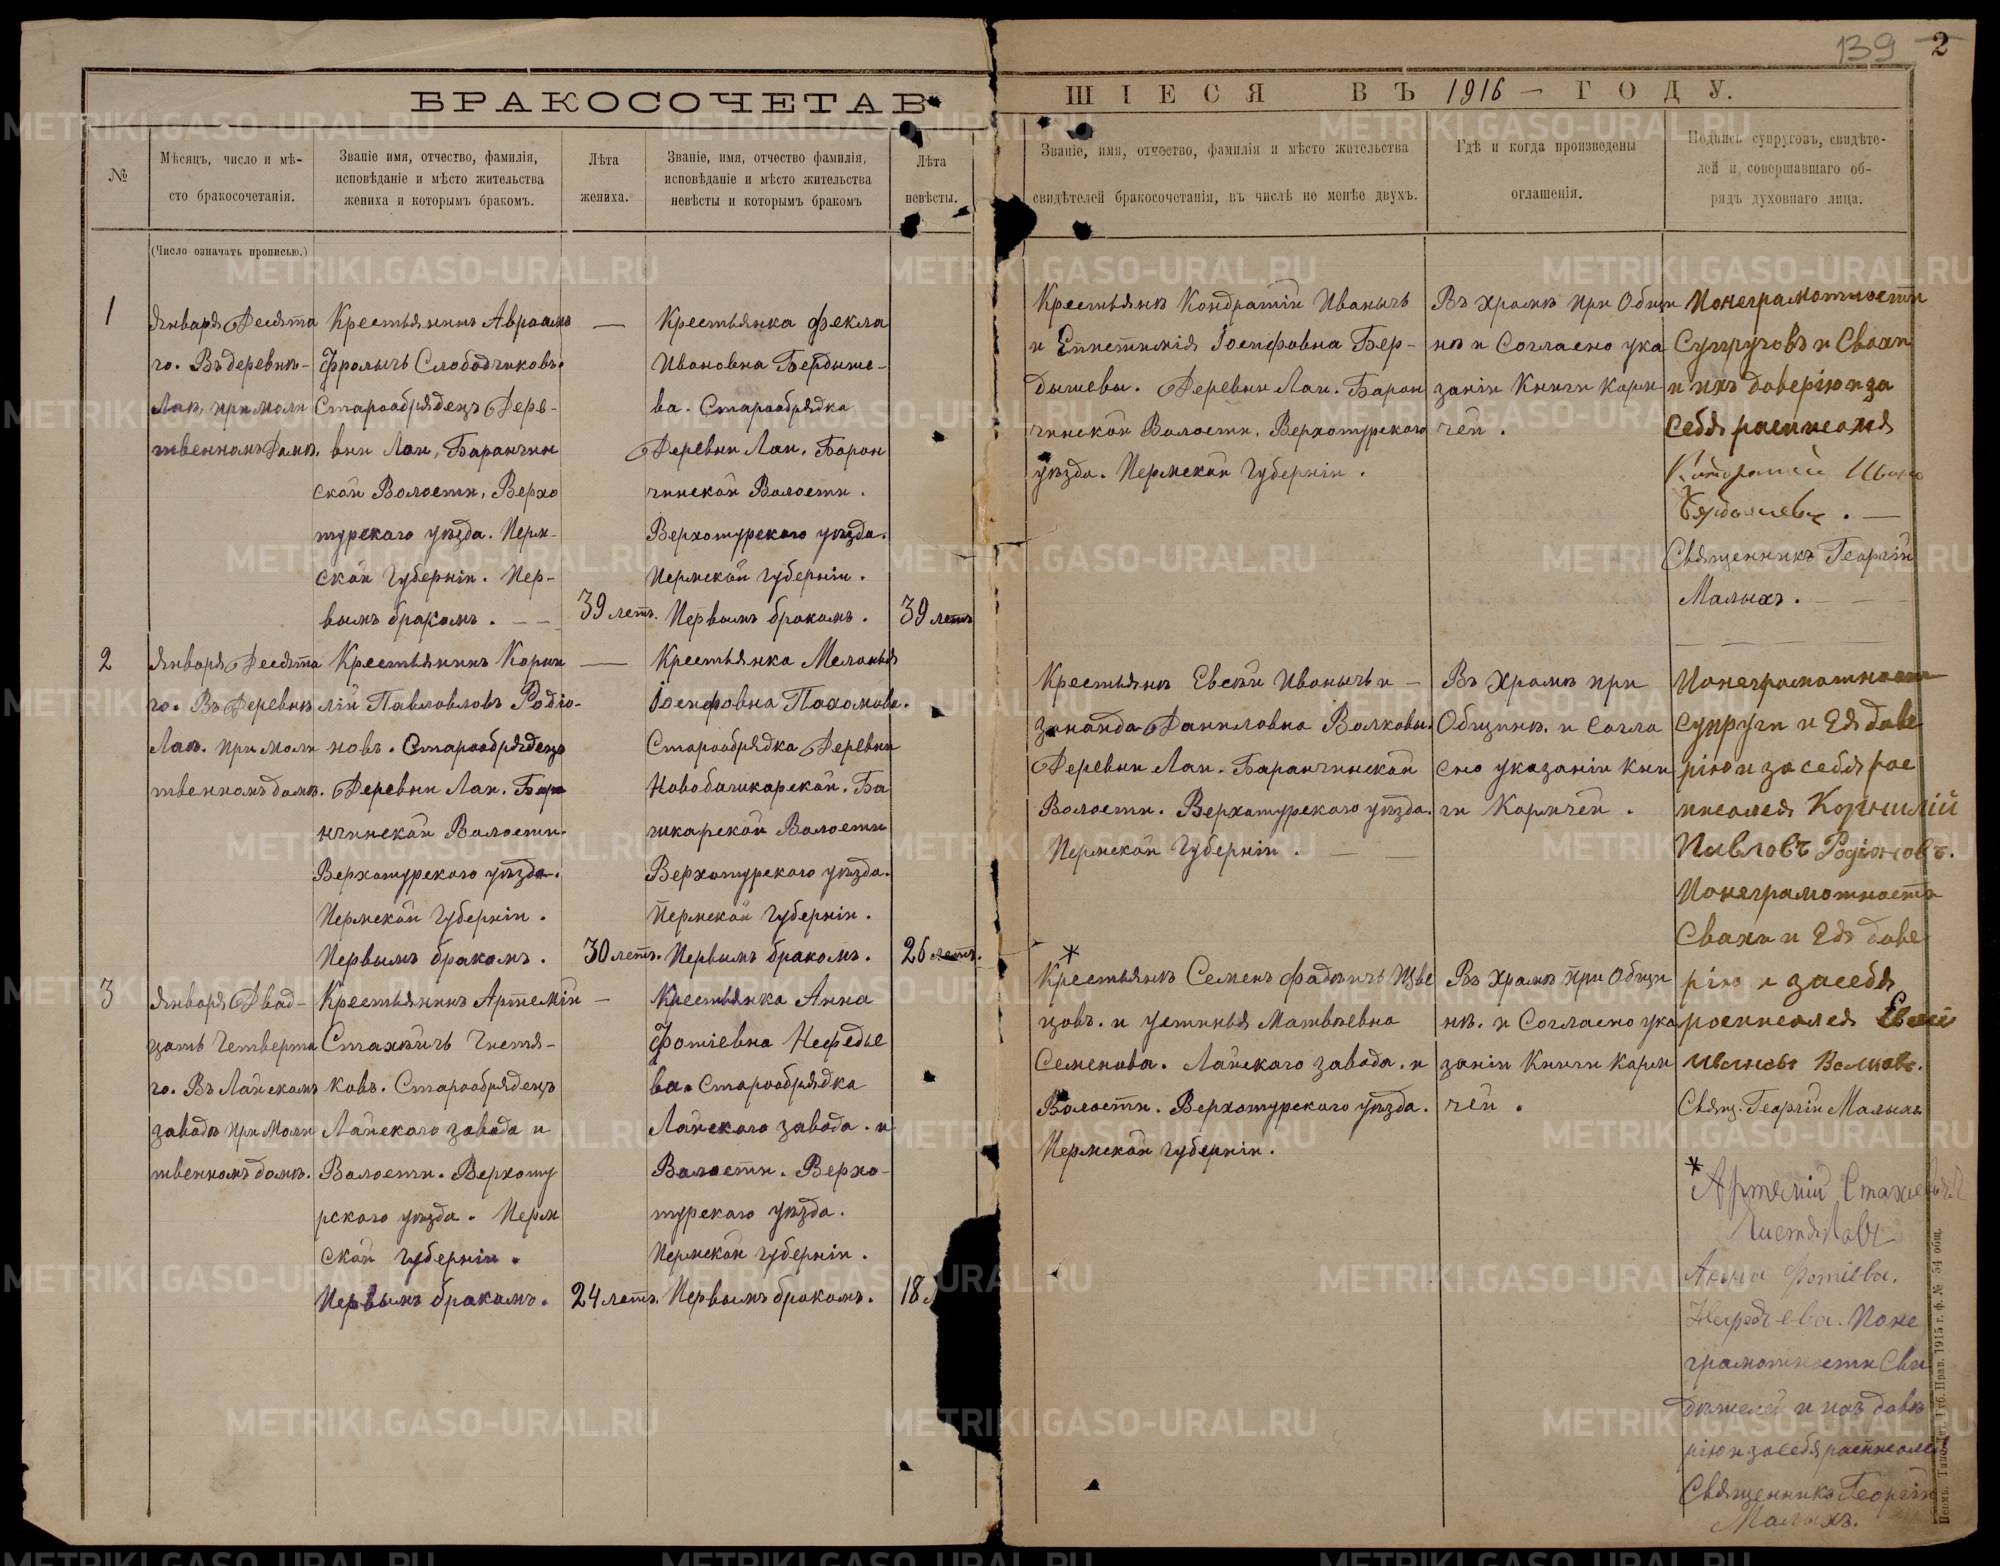 139 2
БРАКОСОЧЕТАВ
ШІЕСЯ ВЪ 1916 ГОДУ.
№
Мѣсяцъ, число и мѣ-
сто бракосочетанія.
(Число означать прописью.)
Званіе имя, отчество, фамилія,
исповѣданіе и мѣсто жительства
жениха и которымъ бракомъ.
Лѣта
жениха.
Званіе, имя, отчество фамилія,
исповѣданіе и мѣсто жительства
невѣсты и которымъ бракомъ
Лѣта
невѣсты.
Званіе, имя, отчество, фамилія и мѣсто жительства
свидѣтелей бракосочетанія, въ числѣ не менѣе двухъ.
Гдѣ и когда произведены
оглашенія.
Подпись супруговъ, свидѣте-
лей и совершавшаго об-
рядъ духовнаго лица.
1
Января Десята
го. Въ деревнѣ-
Лаѣ, при моли
твенномъ домѣ.
Крестьянинъ Авраамъ
Фролычъ Слободчиковъ.
Старообрядецъ Дере-
вни Лаи, Баранчин
ской Волости, Верхо
турскаго уѣзда. Перм-
ской Губерніи. Пер-
вымъ бракомъ.
39 летъ.
Крестьянка Фекла
Ивановна Бердыше-
ва. Старообрядка
Деревни Лаи. Баран
чинской Волости.
Верхотурскаго уѣзда.
Пермской Губерніи.
Первымъ бракомъ.
39 летъ
Крестьянѣ Кондратій Иванычъ
и Епистимія Іосифовна Бер-
дышевы. Деревни Лаи. Баран
чинской Волости. Верхотурскаго
уѣзда. Пермской Губерніи.
Въ храмѣ при Общи
нѣ и Согласно ука
заніи Книги Корм
чей.
Понеграмотности
Супруговъ и Свахи
и ихъ доверію и за
себя расписался
Кондратий Ивано
Бердышевъ.
Священникъ Георгій
Малыхъ.
2
Января Десята
го. Въ Деревнѣ
Лаѣ. при моли
твенномъ домѣ.
Крестьянинъ Корни
лій Павловловъ Родіо-
новъ. Старообрядецъ
Деревни Лаи. Бара
нчинской Волости.
Верхотурскаго уѣзда.
Пермской Губерніи.
Первымъ бракомъ.
30 летъ.
Крестьянка Меланья
Іосифовна Пахомова.
Старообрядка Деревни
Новобашкарской. Ба
шкарской Волости
Верхотурскаго уѣзда.
Пермской Губерніи.
Первымъ бракомъ.
26 летъ.
Крестьянѣ Евсѣй Иванычъ и
Зинаида Даниловна Волковы.
Деревни Лаи. Баранчинской
Волости. Верхотурскаго уѣзда.
Пермской Губерніи.
Въ Храмѣ при
Общинѣ. и согла
сно указаніи Кни
ги Кормчей.
Понеграмотности
супруги и Ея дове
рію и за себя рас
писался Корнилій
Павловъ Родіоновъ.
Понеграмотности
Свахи и Ея дове
рію и за себя
росписался Евсей
Ивановъ Волковъ.
Свящ. Георгій Малыхъ
3
Января Двад-
цать Четверта
го. Въ Лайскомъ
заводѣ при Моли
твенномъ домѣ.
Крестьянинъ Артемій
Стахѣичъ Чистя-
ковъ. Старообрядецъ
Лайскаго завода и
Волости. Верхоту
рскаго уѣзда. Перм
ской Губерніи.
Первымъ бракомъ.
24 летъ.
Крестьянка Анна
Фотіевна Нефедье
ва. Старообрядка
Лайскаго завода. и
Волости. Верхо-
турскаго уѣзда.
Пермской Губерніи.
Первымъ бракомъ.
18
*
Крестьянѣ Семенъ Фадѣичъ Шве
цовъ. и Устинья Матвѣевна
Семенова. Лайскаго завода. и
Волости. Верхотурскаго уѣзда.
Пермской Губерніи.
Въ Храмѣ при Общи
нѣ. и Согласно ука
заніи Книги Корм
чей.
*
Артемій Стахиевичъ
Чистяковъ
Анна Фотіева.
Нефедьева. Поне
грамотности Сви
дѣтелей и ихъ довѣ
рію и за себя расписался
Священникъ Георгій
Малыхъ.
Пермь. Типо-Лит. Губ. Прав. 1915 г. ф. № 54 общ.
METRIKI.GASO-URAL.RU